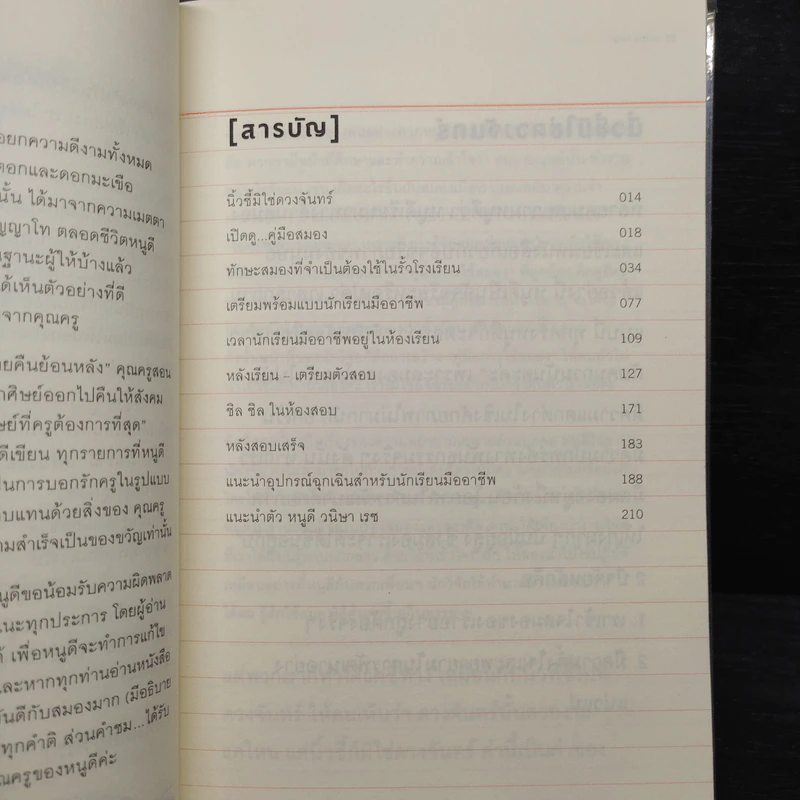 [สารบัญ]
นิ้วชี้มิใช่ดวงจันทร์ 014
เปิดดู...คู่มือสมอง 018
ทักษะสมองที่จำเป็นต้องใช้ในรั้วโรงเรียน 034
เตรียมพร้อมแบบนักเรียนมืออาชีพ 077
เวลานักเรียนมืออาชีพอยู่ในห้องเรียน 109
หลังเรียน – เตรียมตัวสอบ 127
ชิล ชิล ในห้องสอบ 171
หลังสอบเสร็จ 183
แนะนำอุปกรณ์ฉุกเฉินสำหรับนักเรียนมืออาชีพ 188
แนะนำตัว หนูดี วนิษา เรซ 210
ยกความดีงามทั้งหมด
ตอกและดอกมะเขือ
นั้น ได้มาจากความเมตตา
ตลอดชีวิตหนูดี
ฐานะผู้ให้บ้างแล้ว
ด้เห็นตัวอย่างที่ดี
จากคุณครู
ยคืนย้อนหลัง” คุณครูสอน
าศิษย์ออกไปคืนให้สังคม
ษย์ที่ครูต้องการที่สุด”
ดีเขียน ทุกรายการที่หนูดี
ป็นการบอกรักครูในรูปแบบ
บแทนด้วยสิ่งของ คุณครู
ามสำเร็จเป็นของขวัญเท่านั้น
หนูดีขอน้อมรับความผิดพลาด
นะทุกประการ โดยผู้อ่าน
ด้ เพื่อหนูดีจะทำการแก้ไข
และหากทุกท่านอ่านหนังสือ
ันดีกับสมองมาก (มีอธิบาย
ทุกคำติ ส่วนคำชม...ได้รับ
ุณครูของหนูดีค่ะ